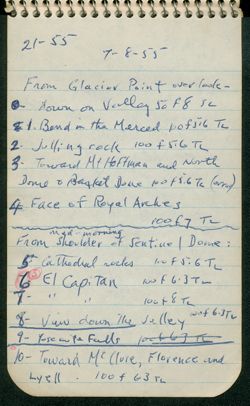 21-55
7-8-55
From Glacier Point overlook-
0- down on Valley 50 f8 SL
1. Bend in the Merced 100 f5.6 TL
2- Julling rock 100 f5.6 TL
3- Toward Mt Hoffman and North
Dome & Basket Dome 100 f5.6 TL
4 Face of Royal Arches
100 f7 TL
mid-morning
From shoulder of Sentinel Dome:
5- Cathedral rocks 100 f5.6 TL
6 El Capitan 100 f6.3 TL
7- " " 100 f8 TL
8- View down the Valley 100 f6.3 TL
9- Yosemite Falls 100 f6.3 TL
10- Toward McClure, Florence and
Lyell. 100 f 63 TL